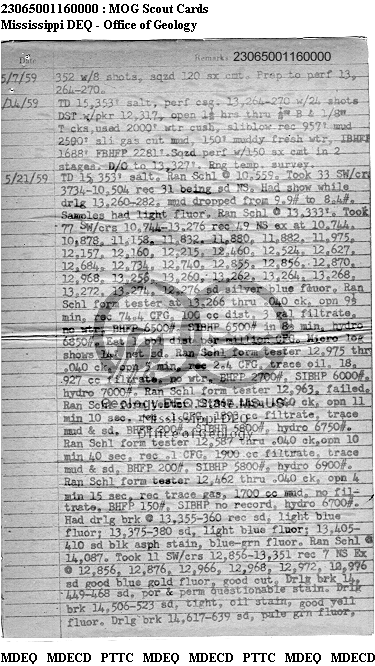 23065001160000 : MOG Scout Cards
Mississippi DEQ - Office of Geology
Date Remarks 23065001160000
5/7/59 352 w/8 shots, sqzd 120 sx cmt. Prep to perf 13,
264-270.
/14/59 TD 15,353' salt, perf csg. 13,264-270 w/24 shots
DST w/pkr 12,317, open 1½ hrs thru B & 1/8W
T cks,used 2000' wtr cush, sliblow rec 957' mud
2500' sli gas cut mud, 150' muddy fresh wtr, IBHFP
1688# FBHFP 2281#.Sqzd perf w/150 sx cmt in 2
stages. D/O to 13,327'. Rng temp. survey.
5/21/59 TD 15,353' salt. Ran Schl @ 10,559. Took 33 SW/crs
3734-10,504 rec 31 being sd NS. Had show while
drlg 13,260-282, mud dropped from 9.9# to 8.4#.
Samples had light fluor. Ran Schl @ 13,333'. Took
77 SW/crs 10,744-13,276 rec 49 NS ex at 10,744,
10,878, 11,158, 11,832, 11,880, 11,882, 11,975,
12,157, 12,160, 12,215, 12,460, 12,524, 12,627,
12,684, 12,734, 12,740, 12,855, 12,856, 12,870,
12,968, 13,256, 13,260, 13,262, 13,264, 13,268,
13,272, 13,274, 13,276 sd silver blue fluor. Ran
Schl form tester at 13,266 thru .040 ck, opn 9½
min, rec 74.4 CFG, 100 cc dist, 3 gal filtrate,
no wtr, BHFP 6500#, SIBHP 6500# in 8½ min, hydro
6850#. Est bbl dist per million CFG. Micro log
shows 14' net sd. Ran Schl form tester 12,975 thru
.040 ck, opn min, rec 2.4 CFG, trace oil, 18,
.927 cc filtrate, no wtr, BHFP 2700#, SIBHP 6000#,
hydro 7000#. Ran Schl form tester 12,963, failed.
Ran Schl .040 ck, opn 11
min 10 sec, rec CFG, cc filtrate, trace
mud & sd, BHFP 200#, SIBHP 5800#, hydro 6750#.
Ran Schl form tester 12,587 thru .040 ck,opn 10
min 40 sec, rec .1 CFG, 1900 cc filtrate, trace
mud & sd, BHFP 200#, SIBHP 5800#, hydro 6900#.
Ran Schl form tester 12,462 thru .040 ck, opn 4
min 15 sec, rec trace gas, 1700 cc mud, no fil-
trate, BHFP 150#, SIBHP no record, hydro 6700#.
Had drlg brk @ 13,355-360 rec sd, light blue
fluor; 13,375-380 sd, light blue fluor; 13,405-
410 sd blk asph stain, blue-grn fluor. Ran Schl @
14,087. Took 11 SW/crs 12,856-13,351 rec 7 NS Ex
@ 12,856, 12,876, 12,966, 12,968, 12,972, 12,976
sd good blue gold fluor, good cut. Drlg brk 14,
449-468 sd, por & perm questionable stain. Drlg
brk 14,506-523 sd, tight, oil stain, good yell
fluor. Drlg brk 14,617-639 sd, pale grn fluor.
MDEQ MDECD PTTC MDEQ MDECD PTTC MDEQ MDECD